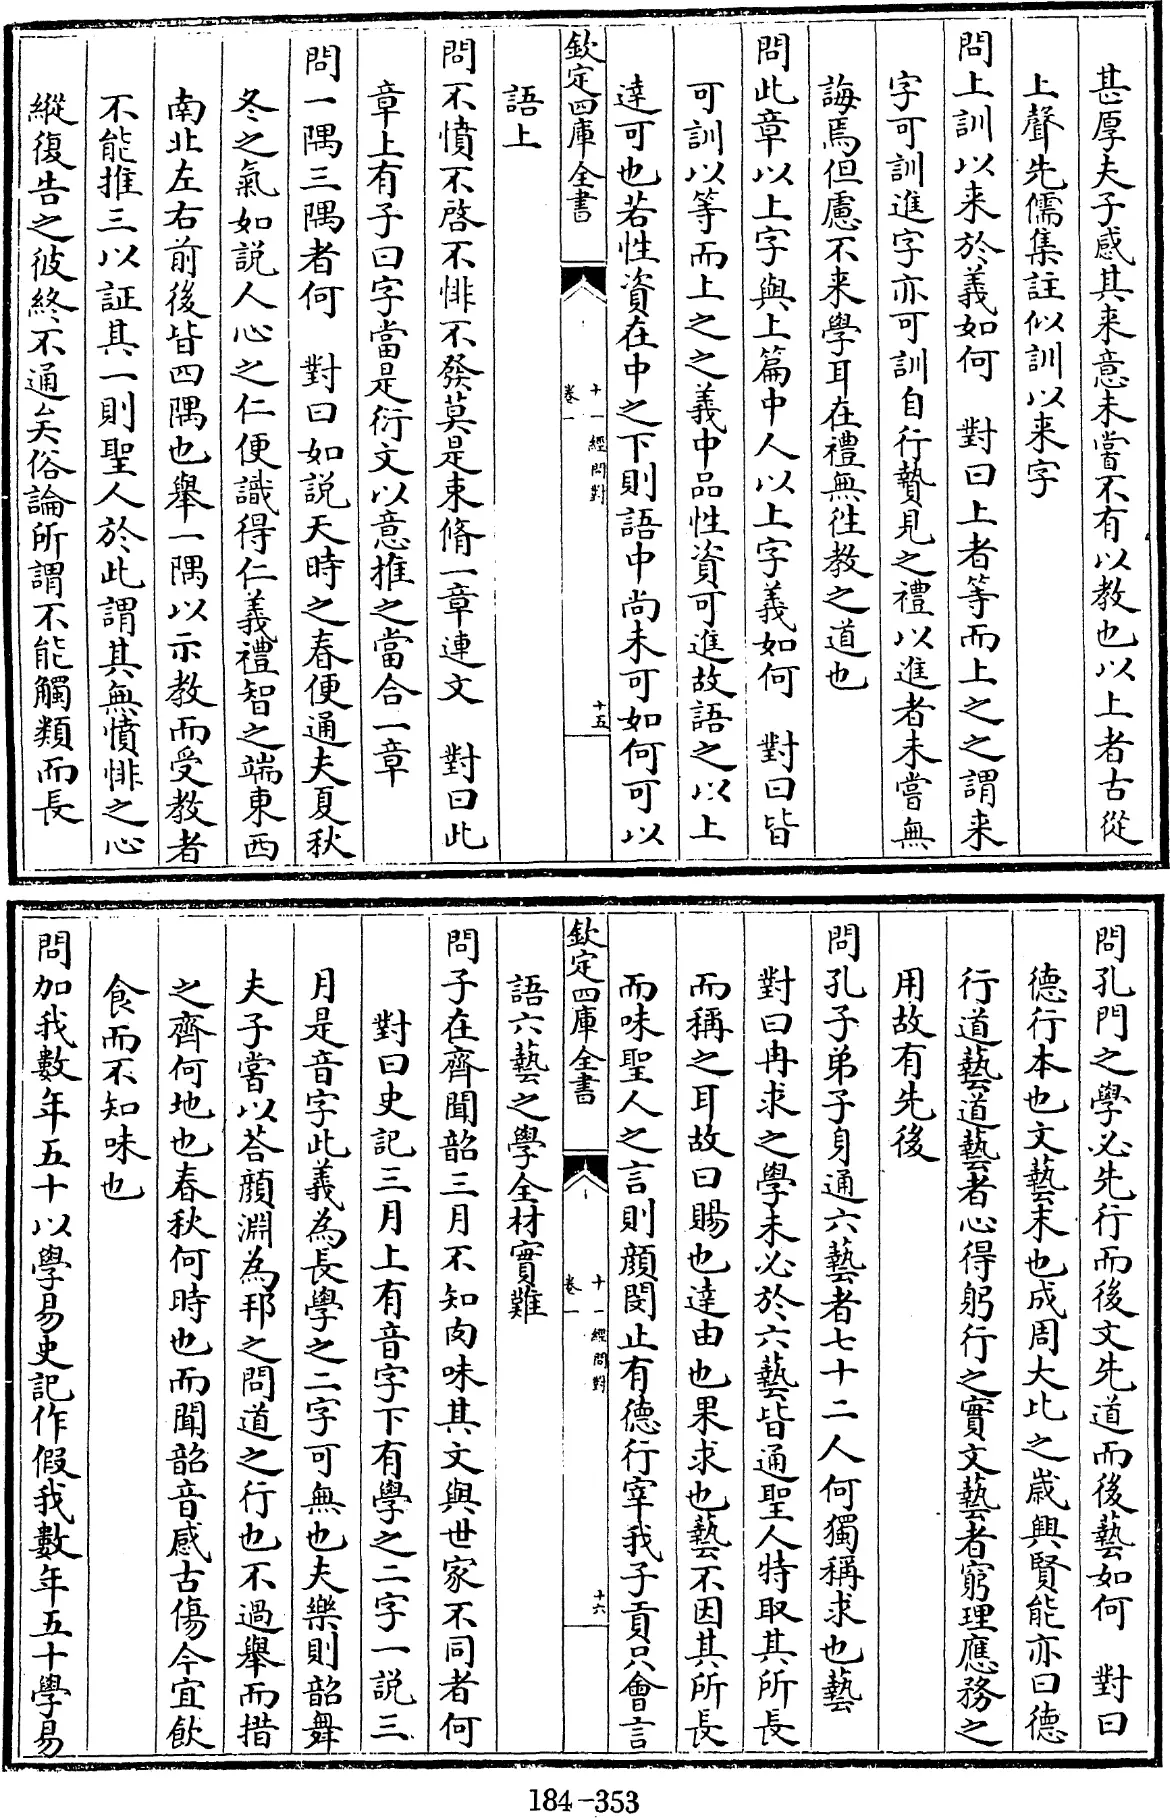 甚厚夫子感其来意未嘗不有以教也以上者古從
上聲先儒集註似訓以来字
問上訓以来於義如何　對曰上者等而上之之謂来
字可訓進字亦可訓自行贄見之禮以進者未嘗無
誨焉但慮不来學耳在禮無往教之道也
問此章以上字與上篇中人以上字義如何　對曰皆
可訓以等而上之之義中品性資可進故語之以上
達可也若性資在中之下則語中尚未可如何可以
欽定四庫全書　卷一　十一經問對　十五
語上
問不憤不啓不悱不發莫是束脩一章連文　對曰此
章上有子曰字當是衍文以意推之當合一章
問一隅三隅者何　對曰如說天時之春便通夫夏秋
冬之氣如說人心之仁便識得仁義禮智之端東西
南北左右前後皆四隅也舉一隅以示教而受教者
不能推三以証其一則聖人於此謂其無憤悱之心
縱復告之彼終不通矣俗論所謂不能觸類而長
問孔門之學必先行而後文先道而後藝如何　對曰
德行本也文藝末也成周大比之嵗興賢能亦曰德
行道藝道藝者心得躬行之實文藝者窮理應務之
用故有先後
問孔子弟子身通六藝者七十二人何獨稱求也藝
對曰冉求之學未必於六藝皆通聖人特取其所長
而稱之耳故曰賜也達由也果求也藝不因其所長
而味聖人之言則顔閔止有德行宰我子貢只會言
欽定四庫全書　卷一　十一經問對　十六
語六藝之學全材實難
問子在齊聞韶三月不知肉味其文與世家不同者何
對曰史記三月上有音字下有學之二字一說三
月是音字此義為長學之二字可無也夫樂則韶舞
夫子嘗以荅顔淵為邦之問道之行也不過舉而措
之齊何地也春秋何時也而聞韶音感古傷今宜飲
食而不知味也
問加我數年五十以學易史記作假我數年五十學易
184-353